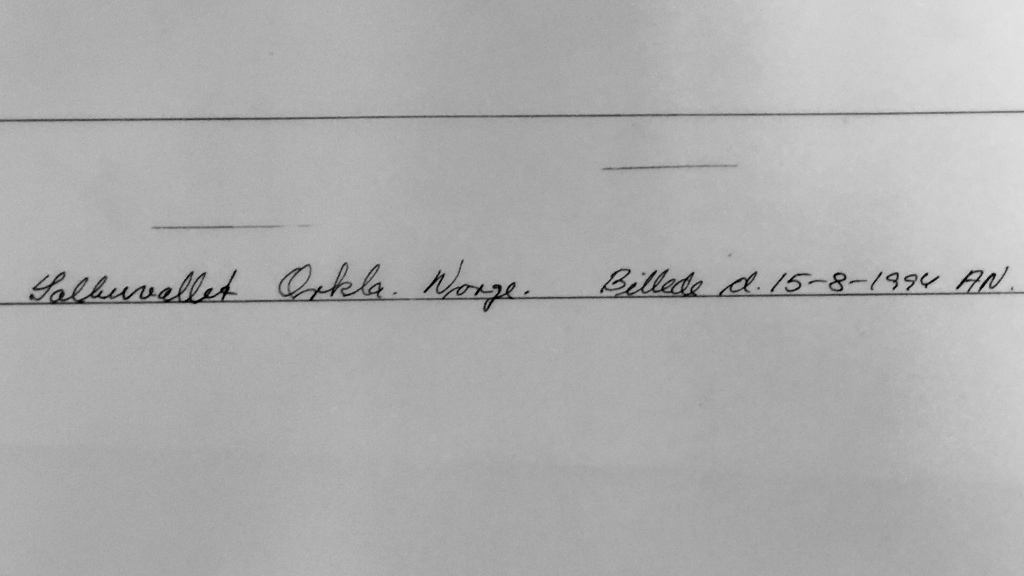 Salbuvallet Orkla. Norge. Billede d. 15-8-1994 AN.